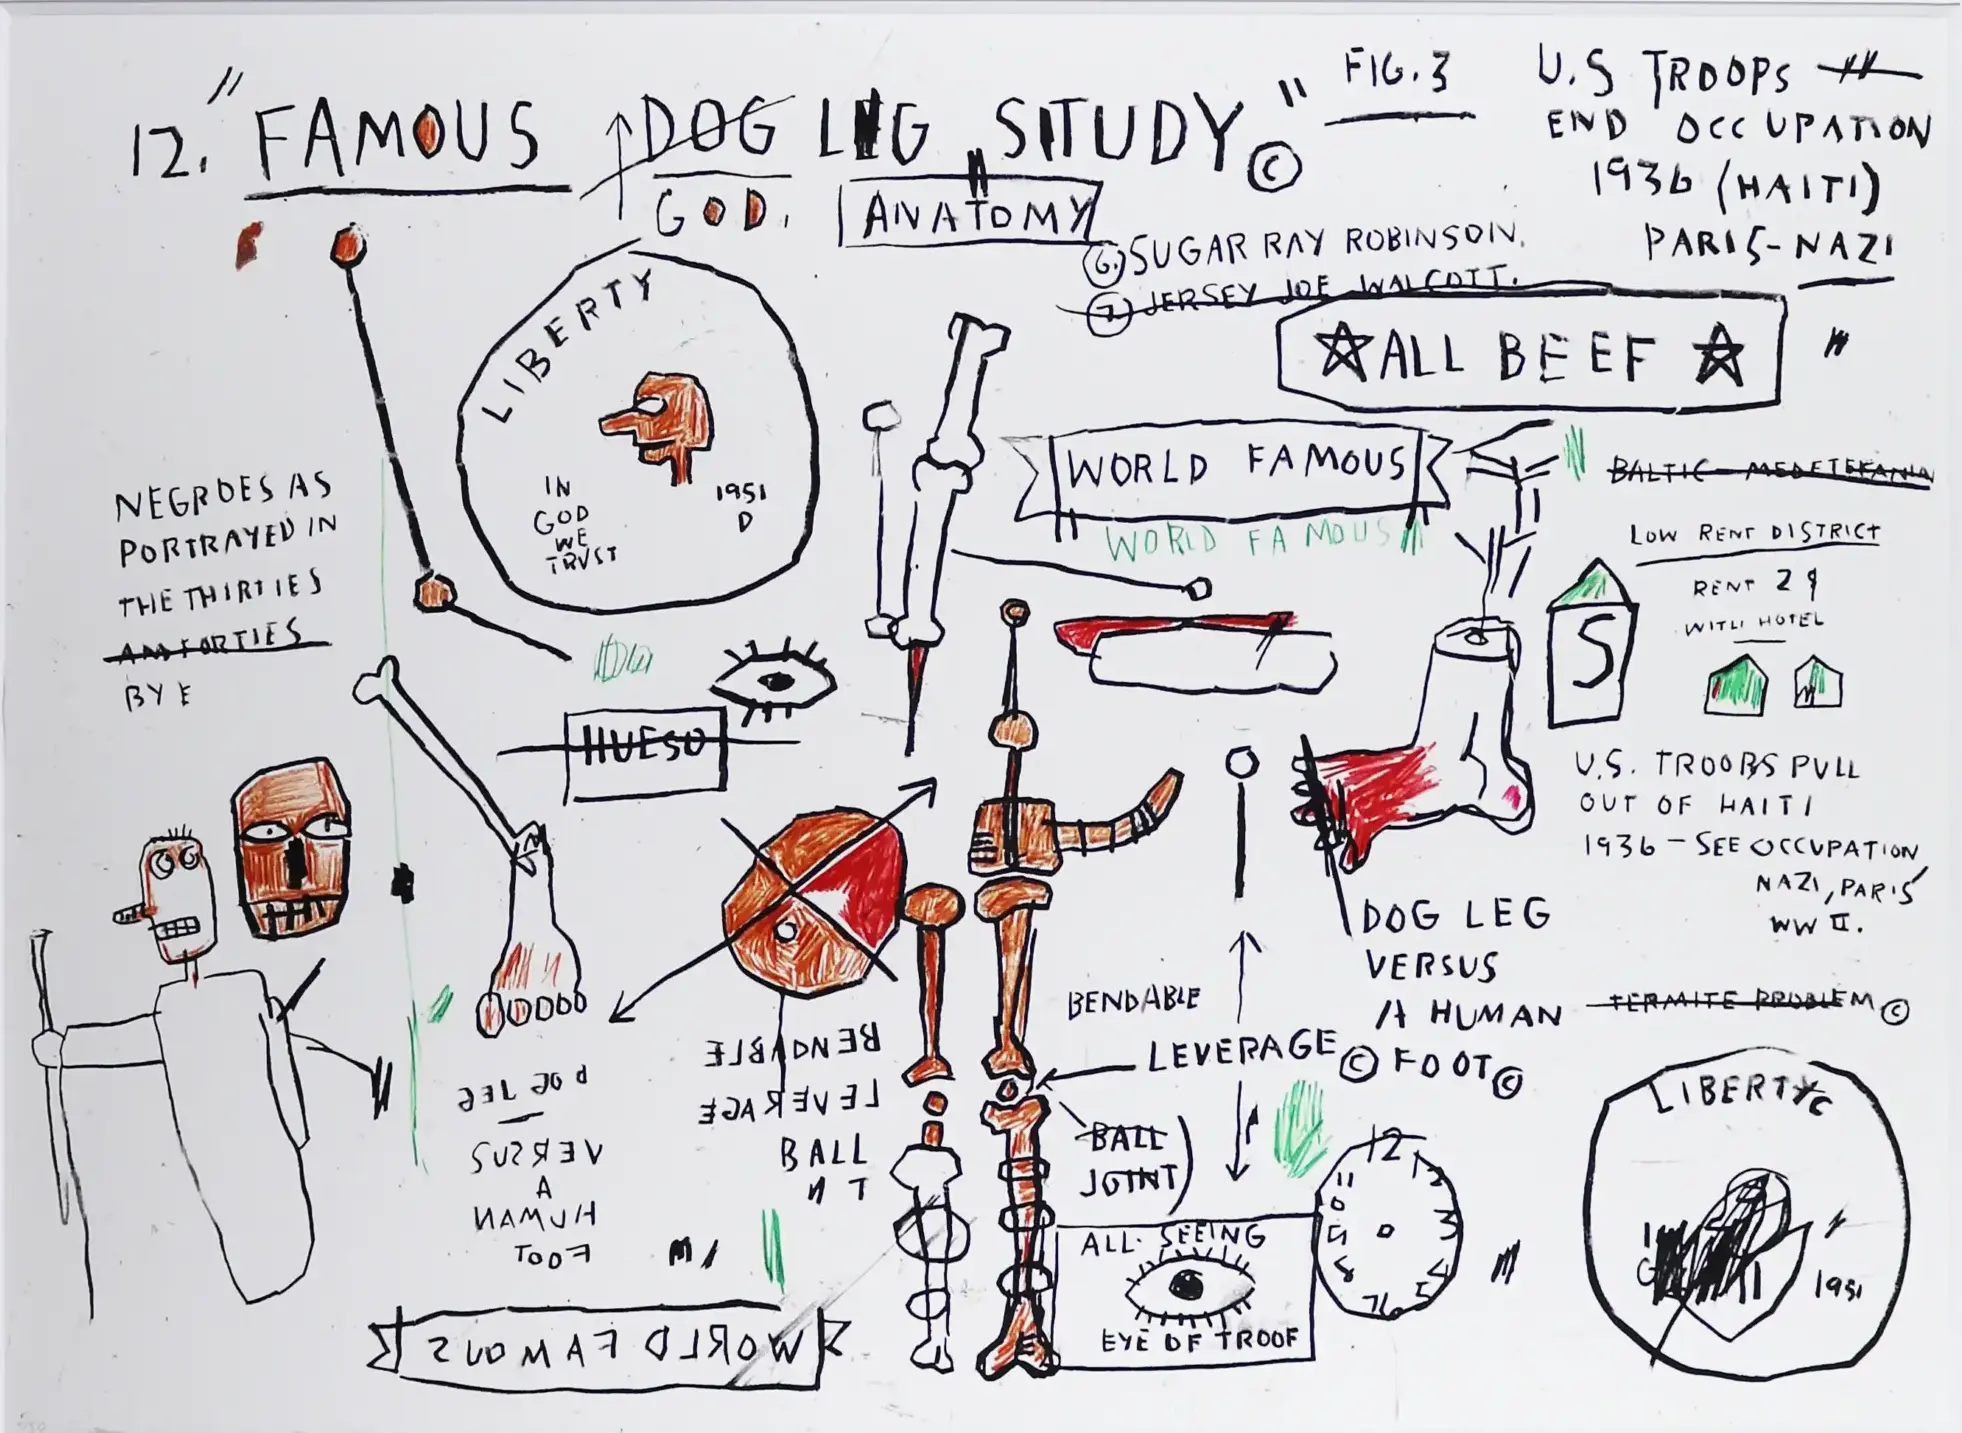 12. "FAMOUS DOG LEG STUDY" ©
GOD.
ANATOMY
FIG. 3
U.S TROOPS
END OCCUPATION
1936 (HAITI)
PARIS-NAZI
6. SUGAR RAY ROBINSON.
7. JERSEY JOE WALCOTT.
ALL BEEF
LIBERTY
IN
GOD
WE
TRVST
1951
D
WORLD FAMOUS
WORLD FAMOUS
BALTIC
LOW RENT DISTRICT
RENT 2
WITH HOTEL
S
NEGROES AS
PORTRAYED IN
THE THIRTIES
AN FORTIES
BY E
HUESO
U.S. TROOBS PULL
OUT OF HAITI
1936 - SEE OCCUPATION
NAZI, PARIS
WW II.
DOG LEG
VERSUS
A HUMAN
FOOT ©
BENDABLE
LEVERAGE ©
BALL
JOINT)
TERMITE PROBLEM ©
BENDABLE
LEVERAGE
BALL
N T
DOG LEG
VERSUS
A
HUMAN
FOOT
ALL SEEING
EYE OF TROOF
12
11
3
LIBERTY
1951
WORLD FAMOUS